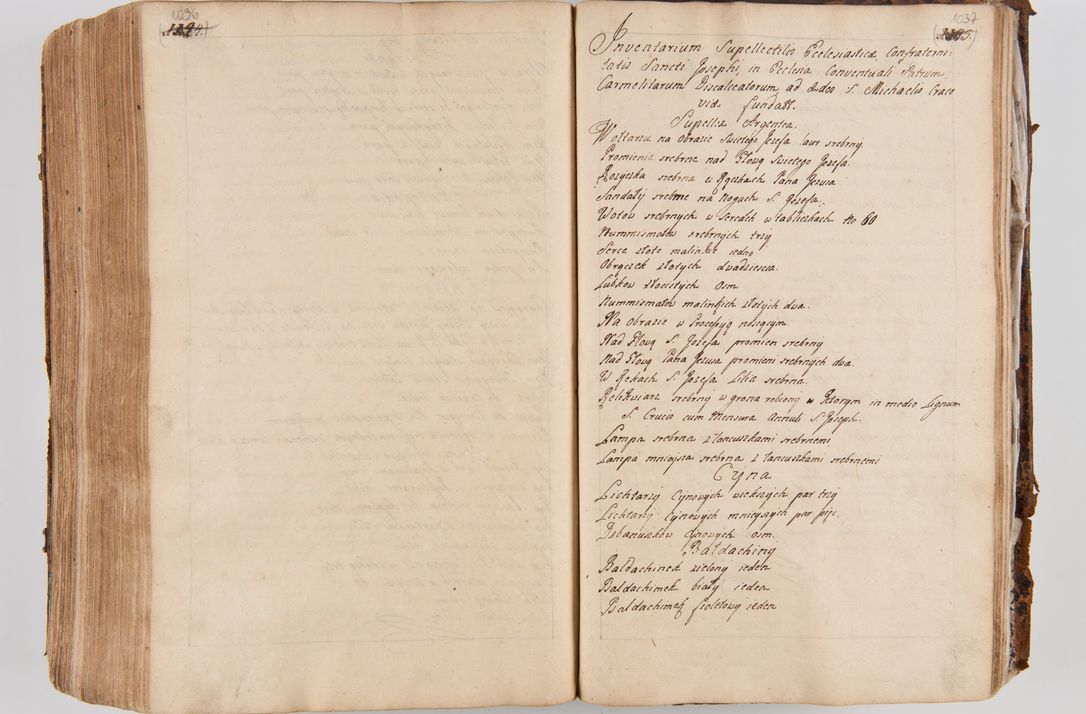 1036
1037
Inventarium Supellectilis Ecclesiasticæ, Confraterni
tatis Sancti Josephi, in Ecclesia Conventuali Patrum
Carmelitarum Discalceatorum, ad Ædes S. Michaelis Craco
viæ fundatt.
Supellex Argentea.
W ołtarzu na obrazie Swietego Jozefa laur srebrny
Promienie srebrne nad Głową Swietego Jozefa.
Rozyczka srebrna w Rączkach Pana Jezusa
Sandały srebrne na Nogach S. Jozefa.
Wotow srebrnych w sercach w tabliczkach No 60
Nummizmatow srebrnych trzy
Serce złote malinkie iedno
Obrączek złotych dwadziescia.
Lubkow złocistych osm
Nummizmatow malinkich złotych dwa.
Na obrazie w Processyą noszącym.
Nad Głową S. Jozefa promien srebrny
Nad Głową Pana Jezusa promieni srebrnych dwa.
W Rękach S. Jozefa Lilia srebrna.
Relikwiarz srebrny w grona robiony w Ktorym in medio Lignum
S. Crucis cum Mensura Annuli S. Joseph.
Lampa srebrna z łancuszkami srebrnemi
Lampa mnieysza srebrna z łancuszkami srebrnemi
Cyna
Lichtarzy Cynowych wiekszych par trzy
Lichtarzy Cynowych mnieyszych par pięc.
Dzbanuszkow cynowych osm.
Baldachiny
Baldachinek zielony ieden
Baldachimek biały ieden
Baldachimek fioletowy ieden